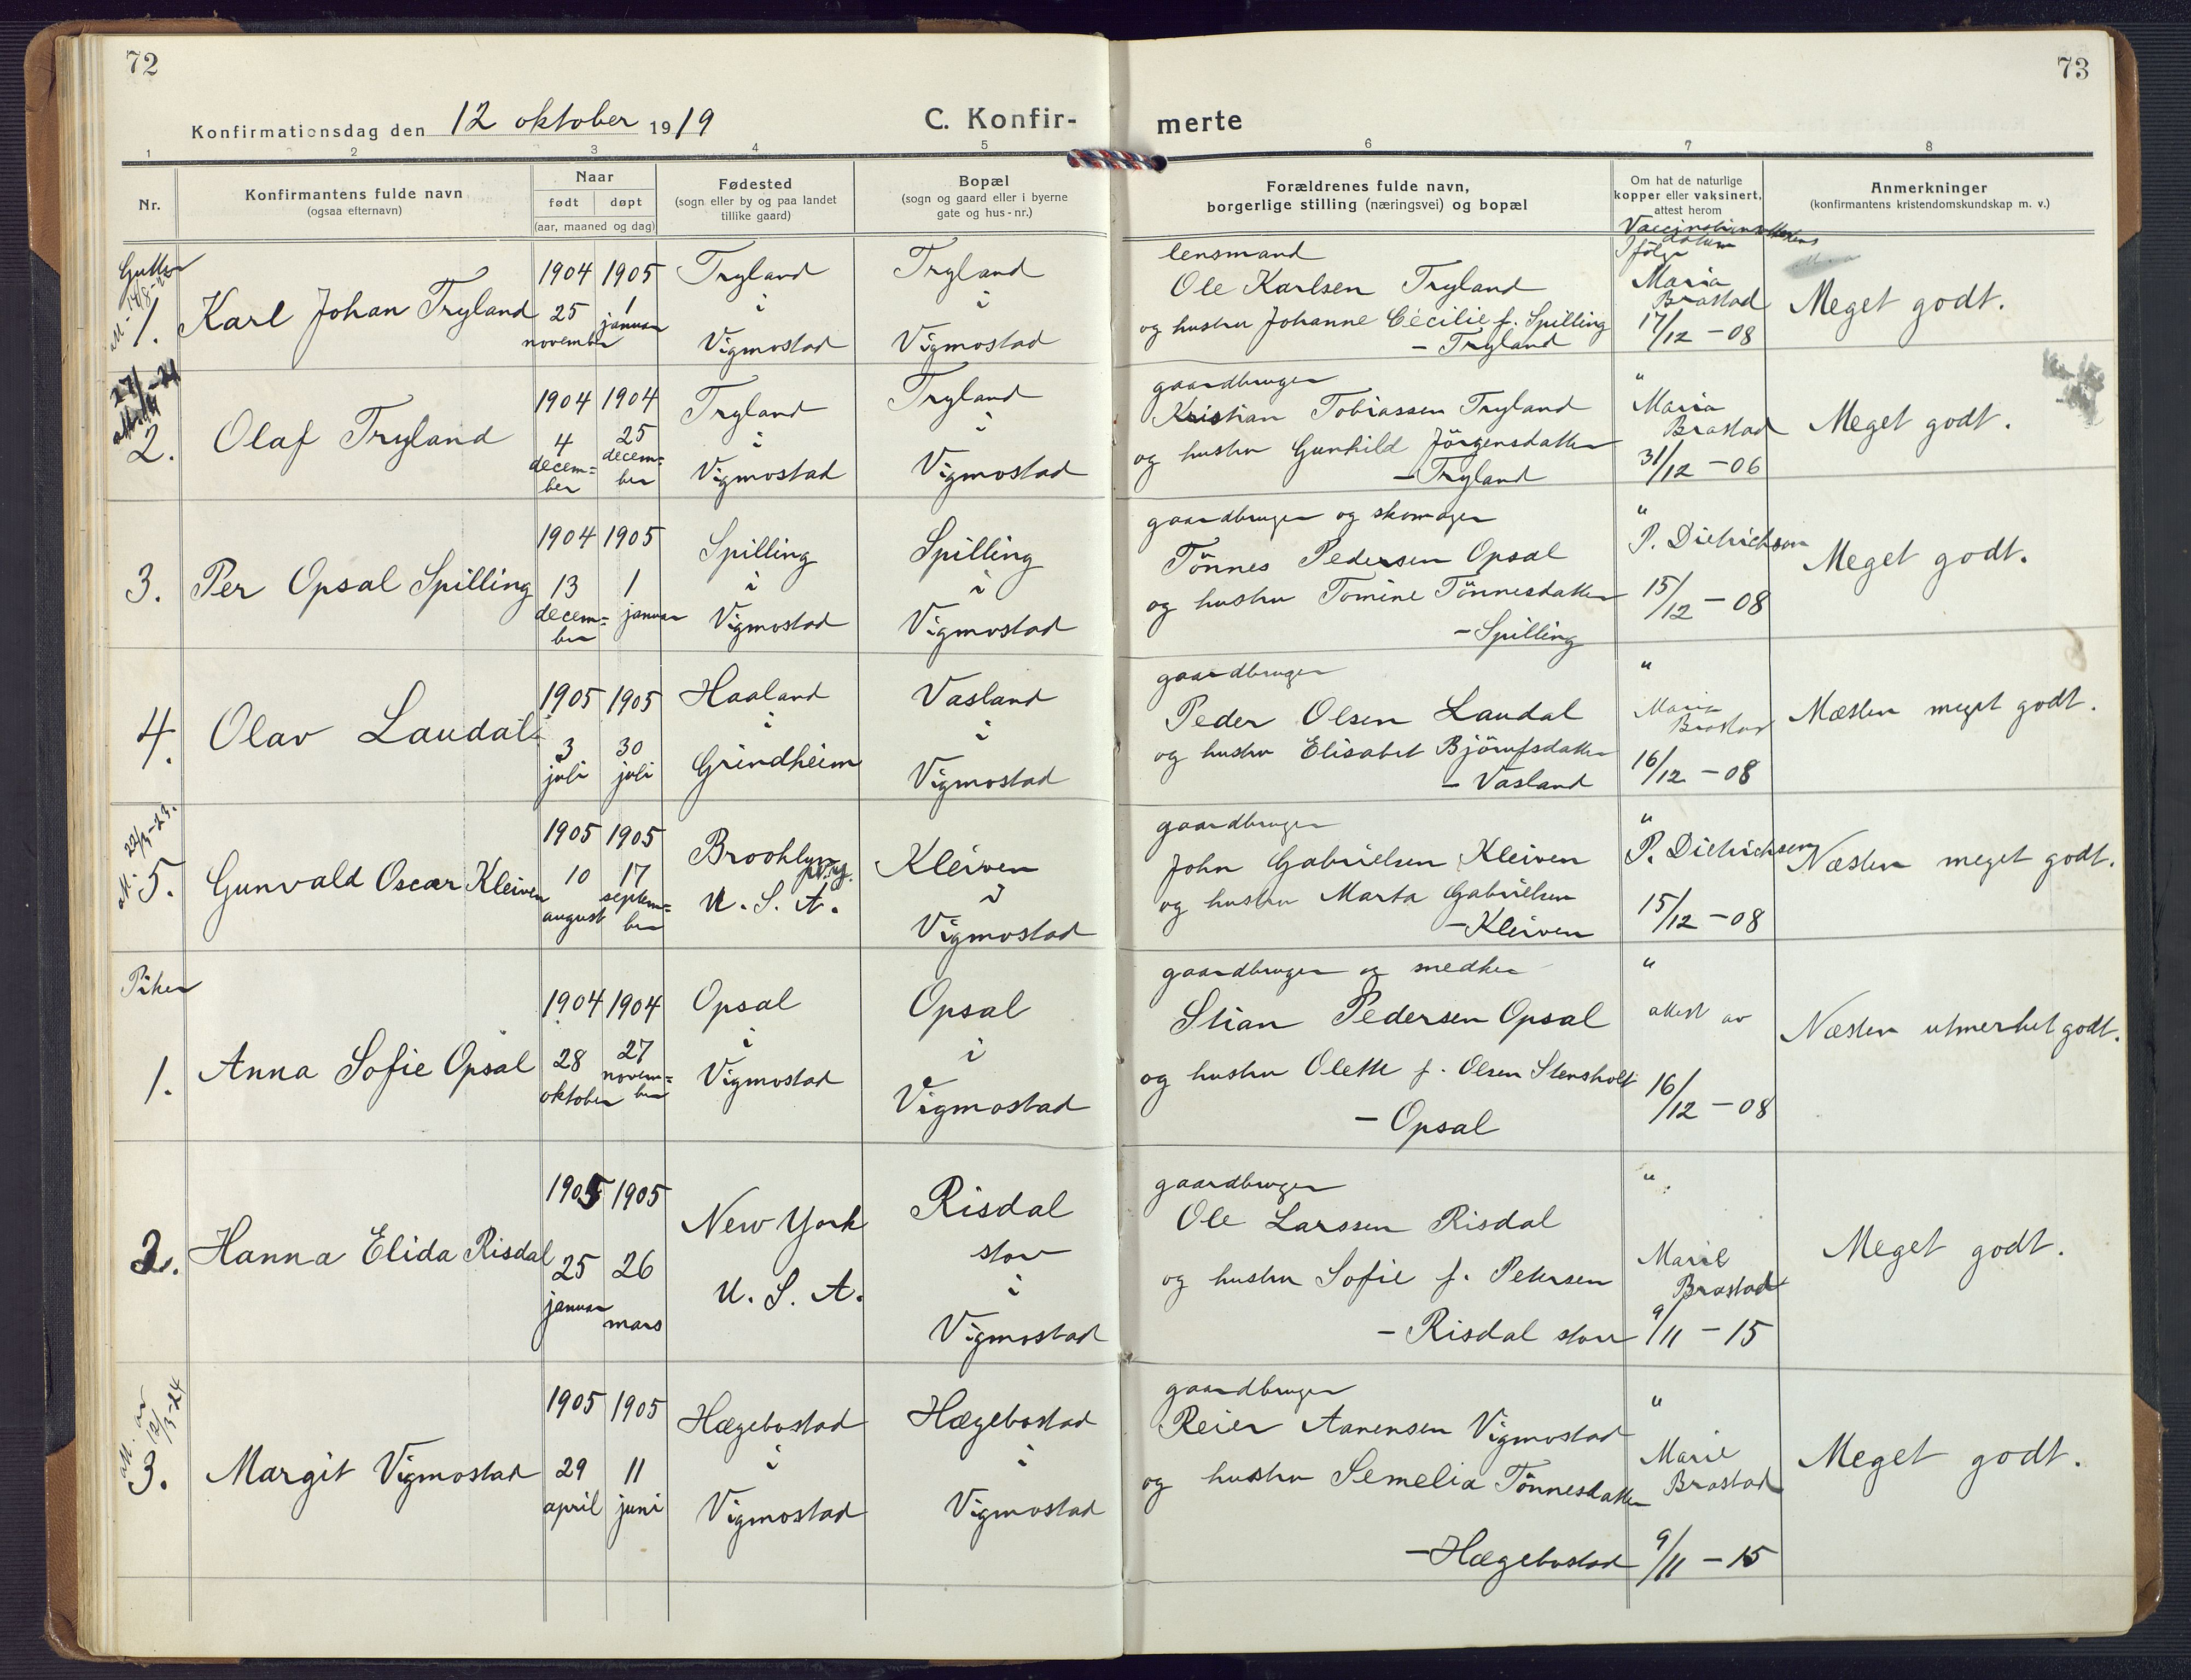 72
73
Konfirmationsdag den 12 oktober 1919
C. Konfir-
merte
1 2 3 4 5 6 7 8
Nr.
Konfirmantens fulde navn
(ogsaa efternavn)
Naar
født døpt
(aar, maaned og dag)
Fødested
(sogn eller by og paa landet
tillike gaard)
Bopæl
(sogn og gaard eller i byerne
gate og hus-nr.)
Forældrenes fulde navn,
borgerlige stilling (næringsvei) og bopæl
Om hat de naturlige
kopper eller vaksinert,
attest herom
Anmerkninger
(konfirmantens kristendomskundskap m. v.)
datum
Ifølge
Gutter
1.
Karl Johan Tryland
1904 1905
25 1
november januar
Tryland
i
Vigmostad
Tryland
i
Vigmostad
lensmand
Ole Karlsen Tryland
og hustru Johanne Cecilie f. Spilling
- Tryland
Maria
Brastad
17/12 - 08
Meget godt.
2.
Olaf Tryland
1904 1904
4 25
decem= decem=
ber ber
Tryland
i
Vigmostad
Tryland
i
Vigmostad
gaardbruger
Kristian Tobiassen Tryland
og hustru Gunhild Jörgensdatter
- Tryland
"
Maria
Brastad
31/12 - 06
Meget godt.
3.
Per Opsal Spilling
1904 1905
13 1
decem= januar
ber
Spilling
i
Vigmostad
Spilling
i
Vigmostad
gaardbruger og skomager
Tönnes Pedersen Opsal
og hustru Tomine Tönnesdatter
- Spilling
"
P. Dietrichson
15/12 - 08
Meget godt.
4.
Olav Laudal
1905 1905
3 30
juli juli
Haaland
i
Grindheim
Vasland
i
Vigmostad
gaardbruger
Peder Olsen Laudal
og hustru Elisabet Björnfsdatter
- Vasland
"
Maria
Brastad
16/12 - 08
Næsten meget godt.
att. 22/3-23.
5.
Gunvald Oscar Kleiven
1905 1905
10 17
august septem=
ber
Brooklyn
N.Y.
U. S. A.
Kleiven
i
Vigmostad
gaardbruger
John Gabrielsen Kleiven
og hustru Marta Gabrielsen
- Kleiven
"
P. Dietrichsen
15/12 - 08
Næsten meget godt.
Piker
1.
Anna Sofie Opsal
1904 1904
28 27
oktober novem=
ber
Opsal
i
Vigmostad
Opsal
i
Vigmostad
gaardbruger og snedker
Stian Pedersen Opsal
og hustru Olette f. Olsen Stensholt
- Opsal
"
attest av
16/12 - 08
Næsten utmerket godt.
2.
Hanna Elida Risdal
1905 1905
25 26
januar mars
New York
U. S. A.
Risdal
stor
i
Vigmostad
gaardbruger
Ole Larssen Risdal
og hustru Sofie f. Petersen
- Risdal stor
"
Marie
Brastad
9/11 - 15
Meget godt.
att. av
12/3-24
3.
Margit Vigmostad
1905 1905
29 11
april juni
Hægebostad
i
Vigmostad
Hægebostad
i
Vigmostad
gaardbruger
Reier Aanensen Vigmostad
og hustru Semelia Tönnesdatter
- Hægebostad
"
Marie
Brastad
9/11 - 15
Meget godt.